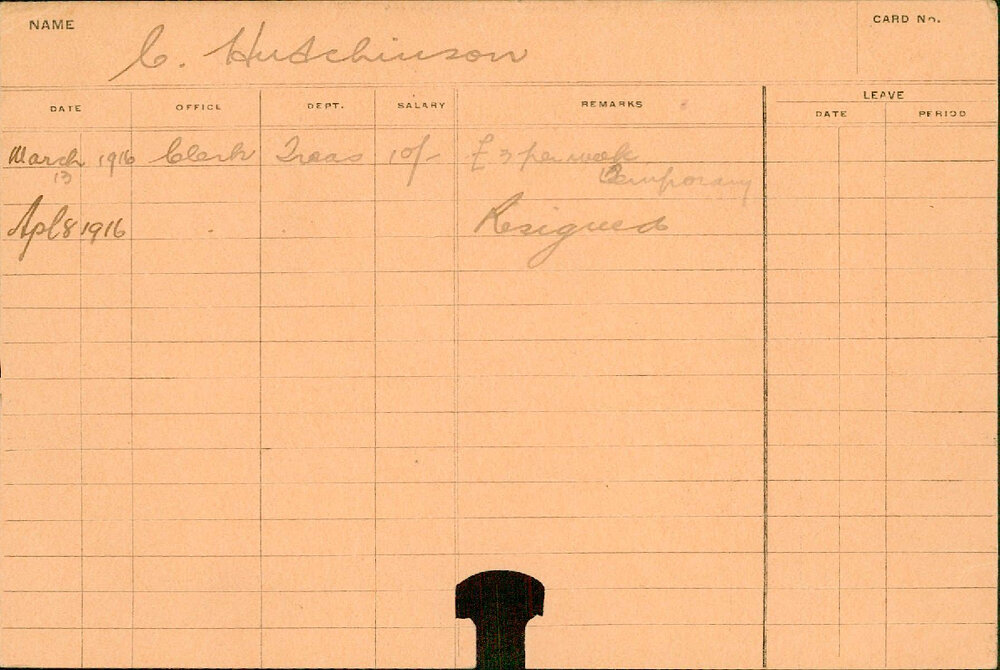 NAME
CARD No.
C. Hutchinson
DATE OFFICE DEPT. SALARY REMARKS LEAVE
DATE PERIOD
March 1916 Clerk Treas 10/- £3 per week
13 Temporary
Apl 8 1916 Resigned